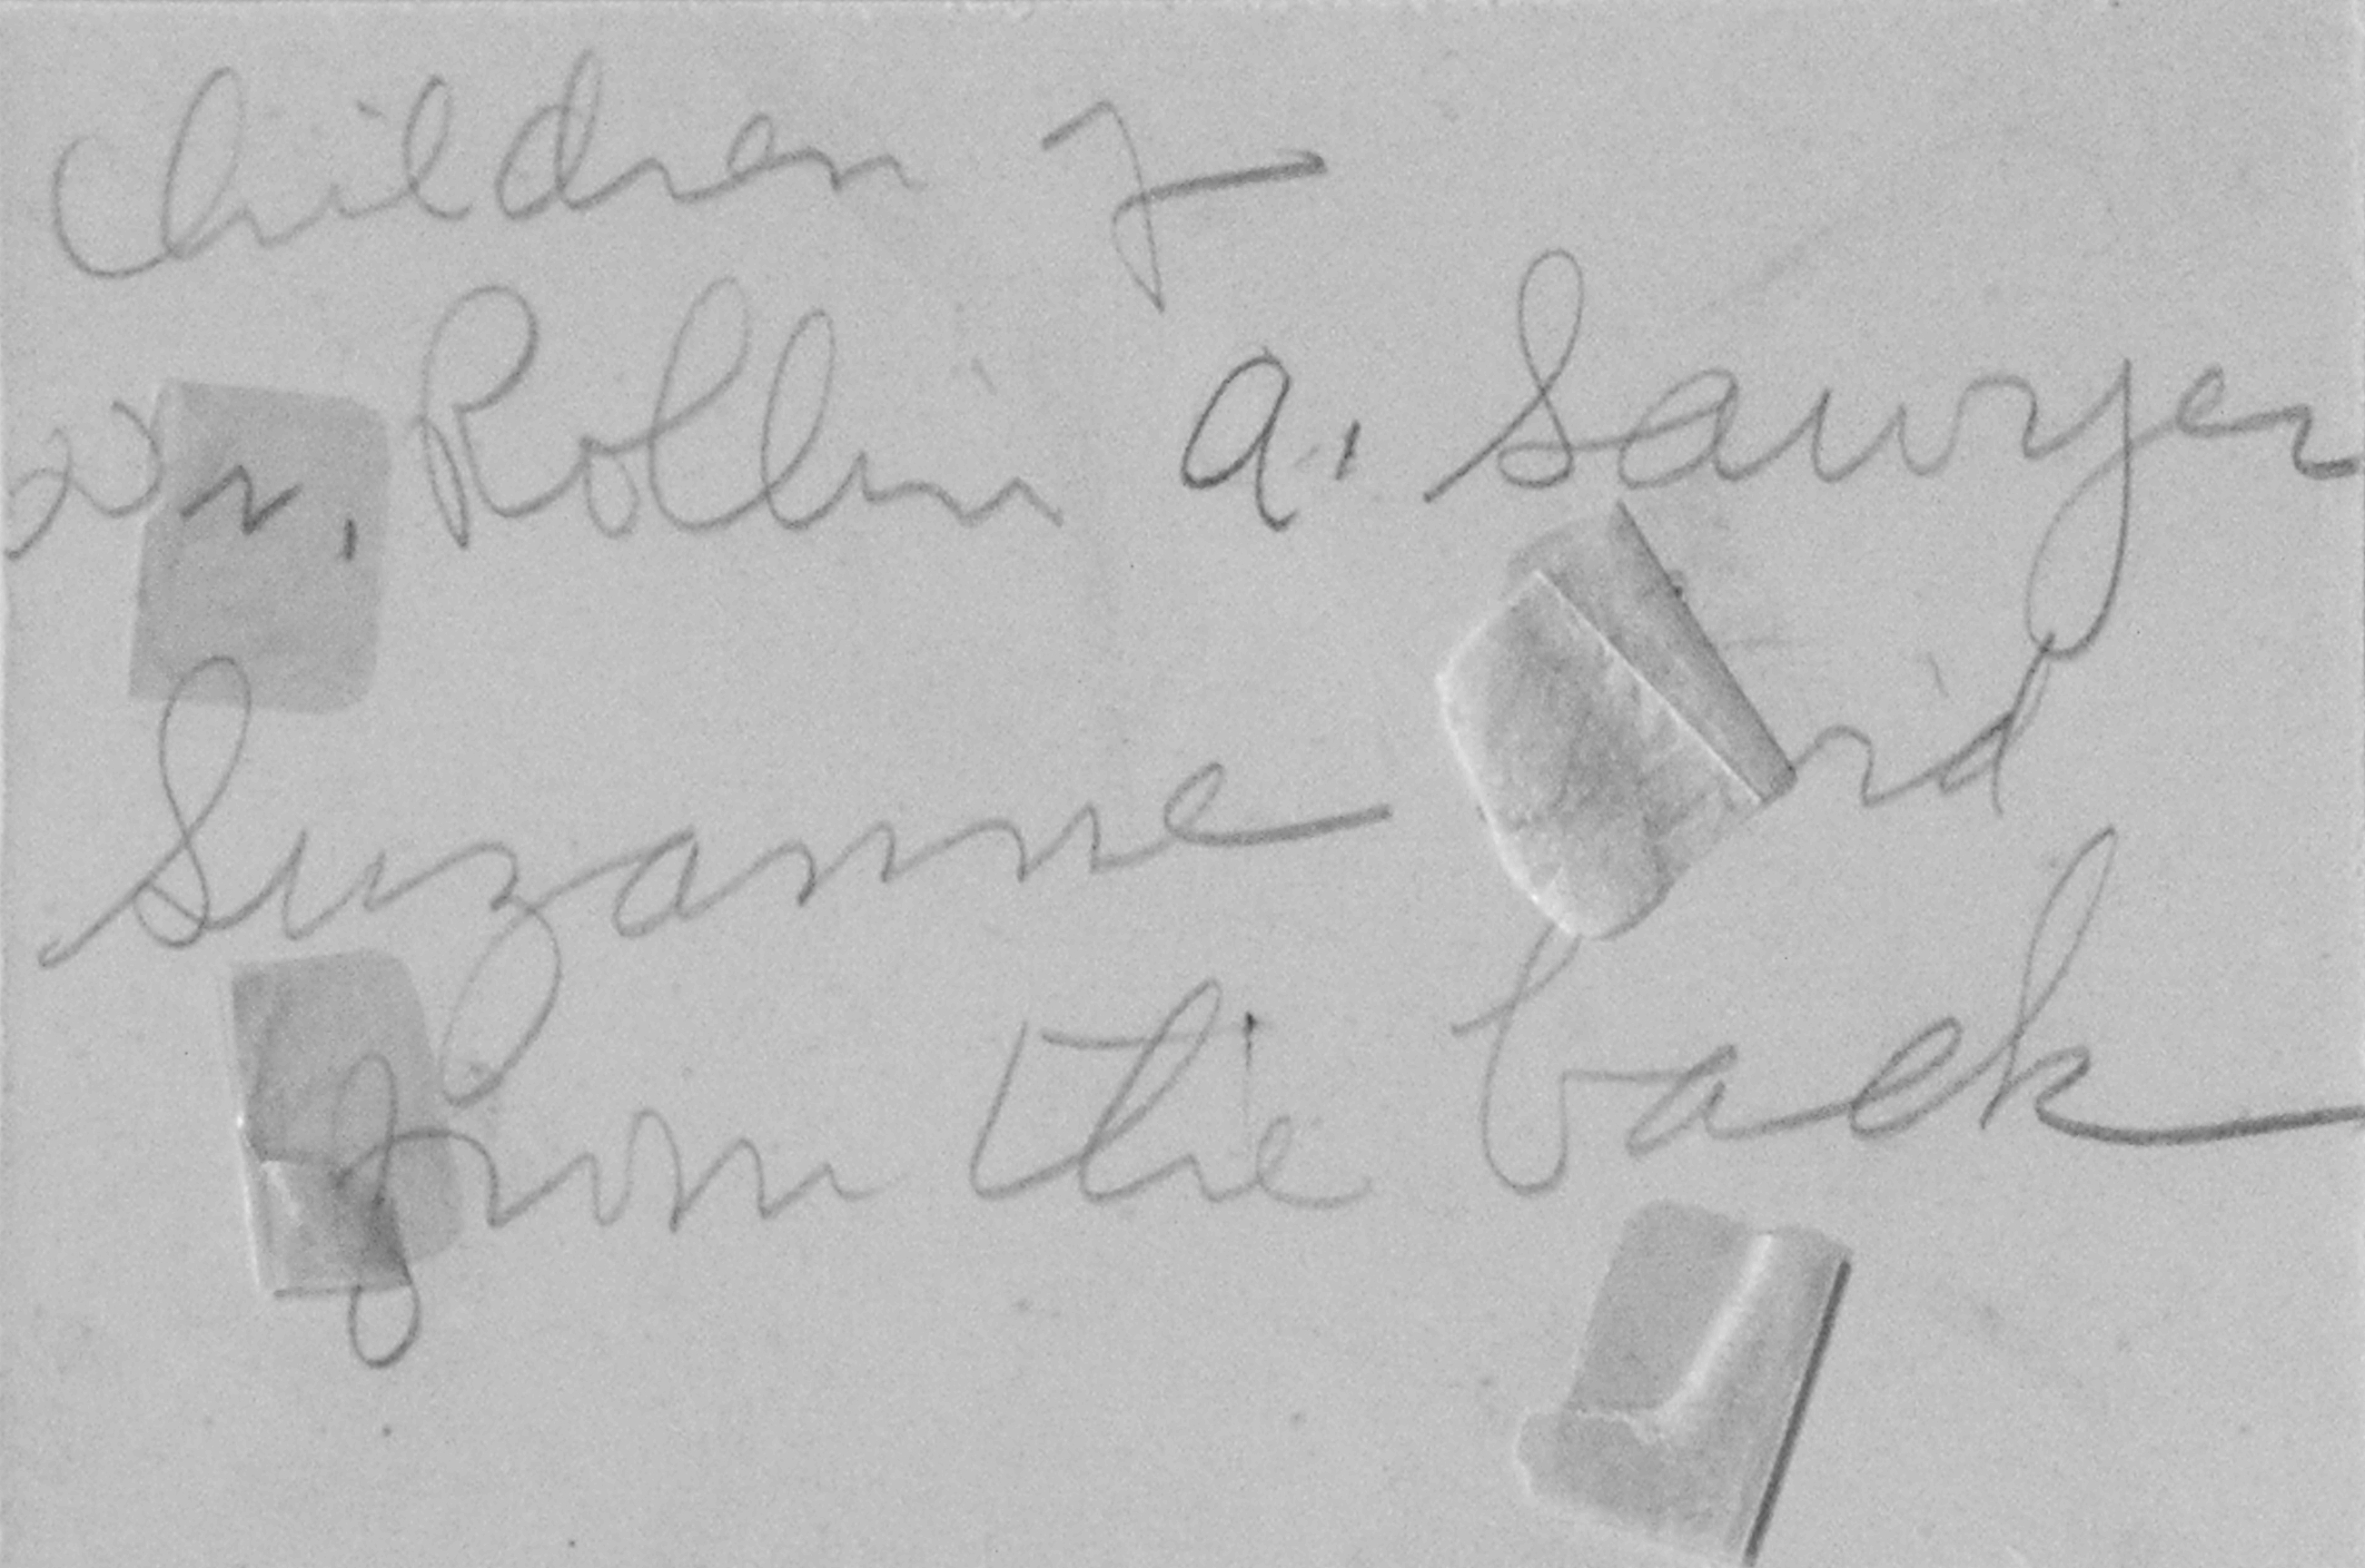 Children of
Dr. Rollin A. Sawyer
Suzanne
from the back